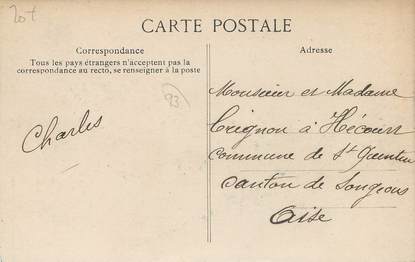 20+
CARTE POSTALE
Correspondance
Tous les pays étrangers n'acceptent pas la
correspondance au recto, se renseigner à la poste
Adresse
93
Charles
Monsieur et Madame
Crignon à Hécourt
Commune de St Quentin
Canton de Songeons
Oise